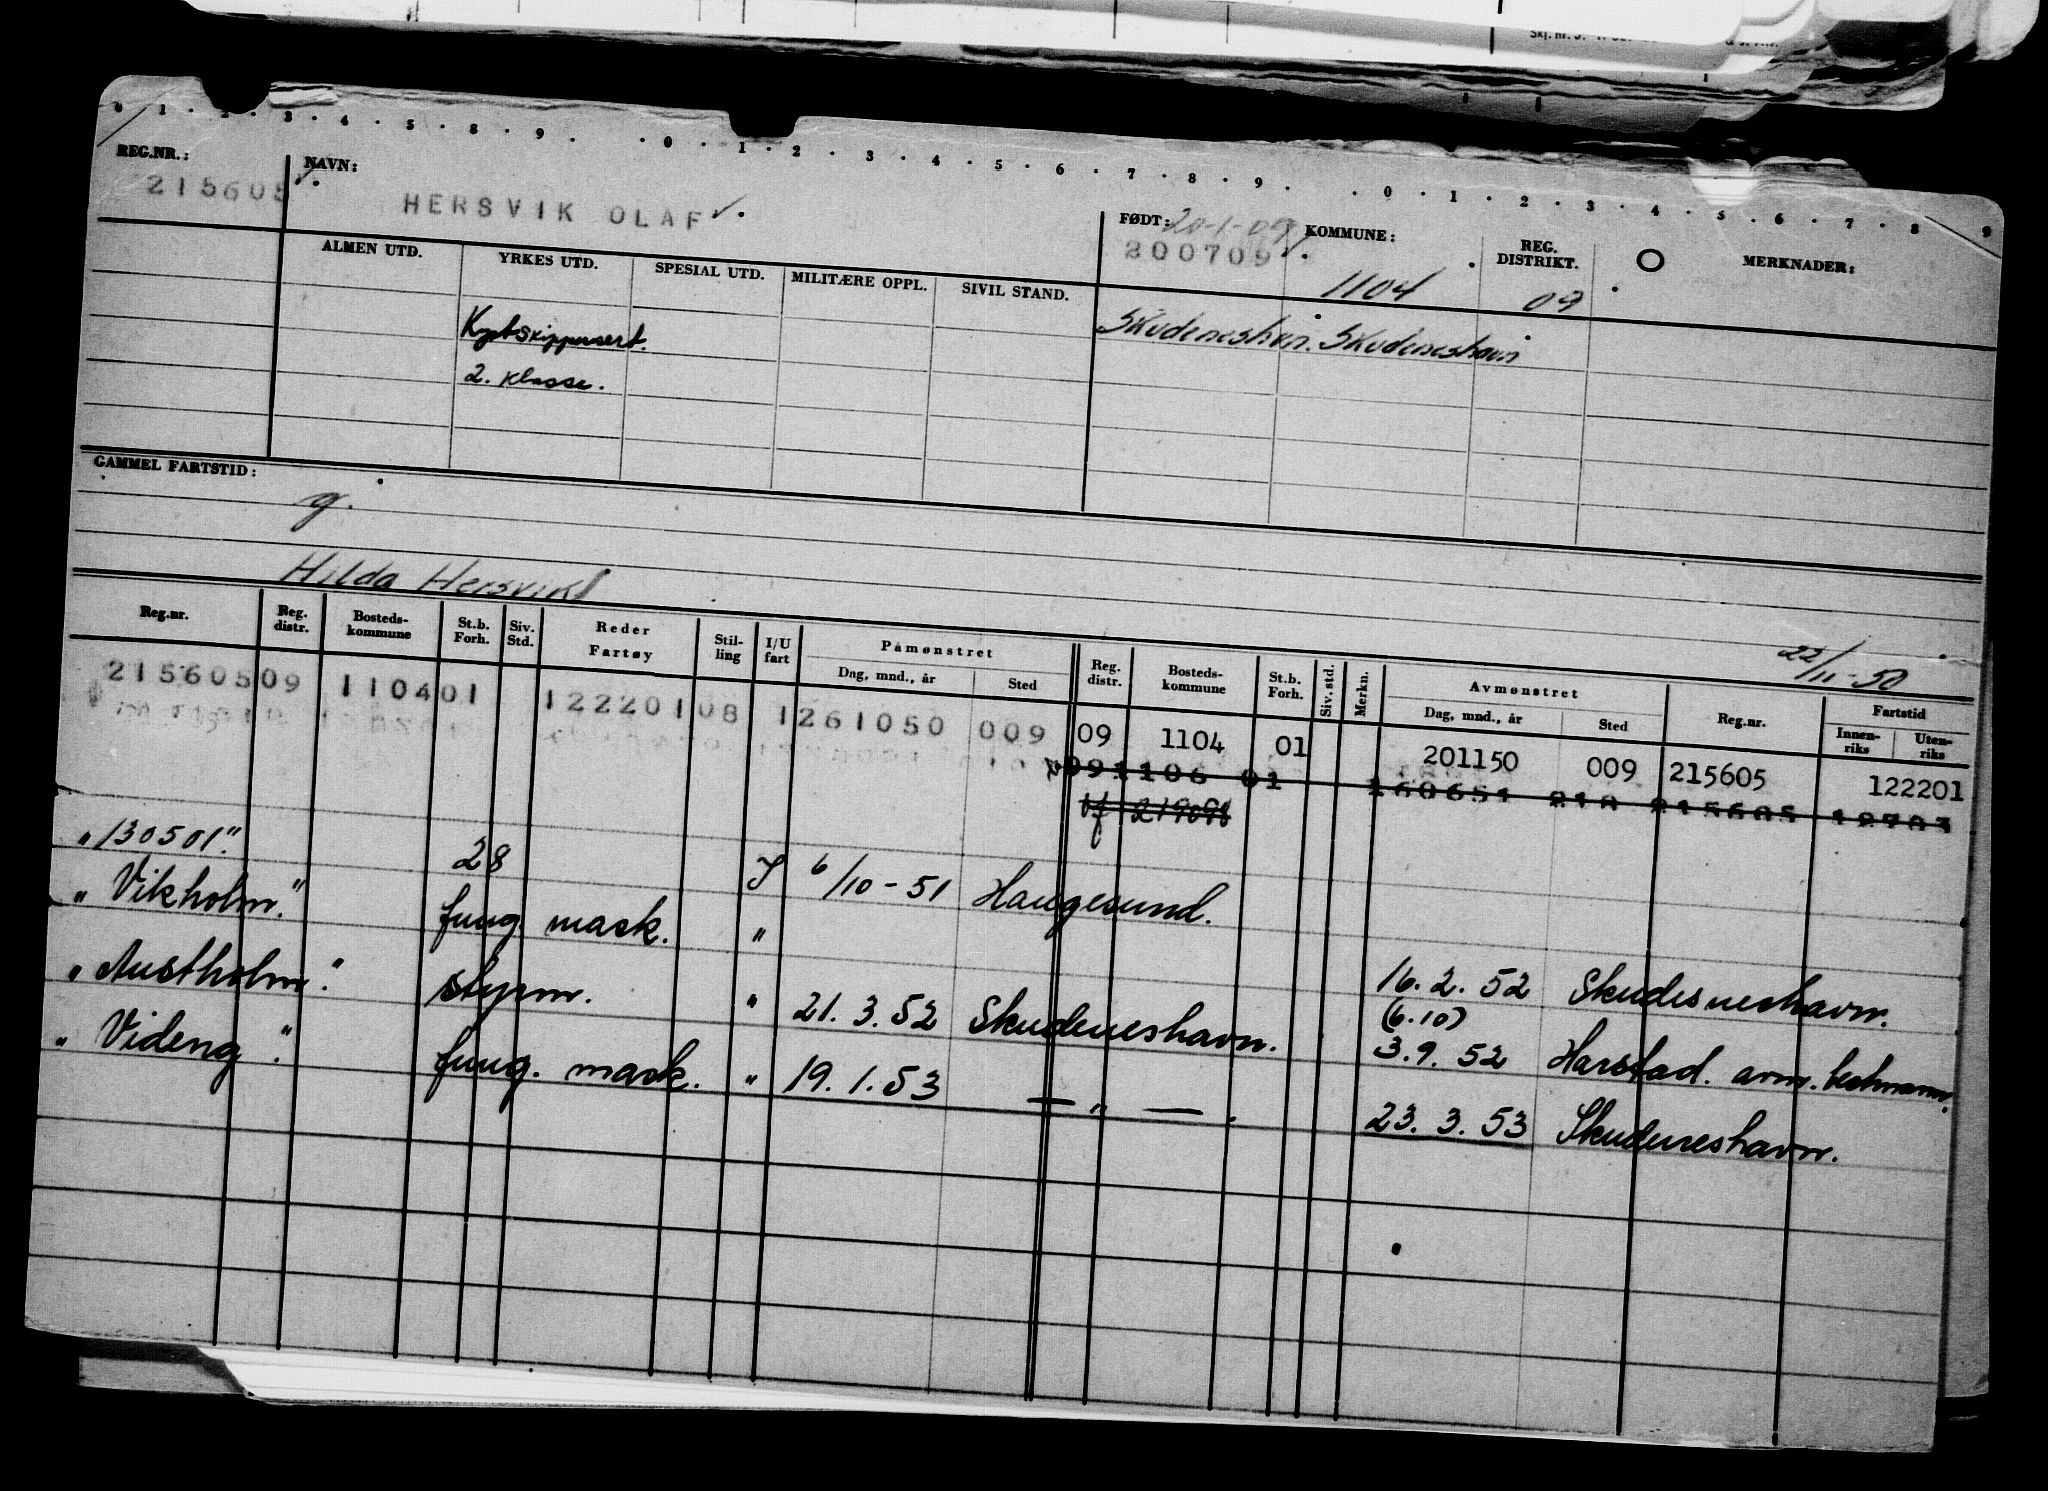 0 1 2 3 4 5 8 9 0 1 2 3 4 5 6 7 8 9 0 1 2 3 4 5 6 7 8 9
REG.NR.: NAVN: FØDT: 20-1-09 KOMMUNE: REG. DISTRIKT. MERKNADER:
215605 HERSVIK OLAF 200709 1104 09
ALMEN UTD. YRKES UTD. SPESIAL UTD. MILITÆRE OPPL. SIVIL STAND.
Kystskippersert. Skudeneshavn. Skudeneshavn
2. klasse.
GAMMEL FARTSTID:
g.
Hilda Hersvik
22/11-50
Reg.nr. Reg. distr. Bosteds-kommune St.b. Forh. Siv. Std. Reder Fartøy Stil-ling I/U fart Påmønstret Dag, mnd., år Sted Reg. distr. Bosteds-kommune St.b. Forh. Siv. std. Merkn. Avmønstret Dag, mnd., år Sted Reg.nr. Fartstid Innen-riks Uten-riks
215605 09 1104 01 122201 08 1 261050 009 09 1104 01 201150 009 215605 122201
09 1106 01 160651 218 215605 12703
"130501". 28 I 6/10-51 Haugesund.
"Vikholm." fung. mask. " 16.2.52 Skudesneshavn.
(6.10)
"Austholm". styrm. " 21.3.52 Skudeneshavn. 3.9.52 Harstad. avm. bestmann.
"Videng". fung. mask. " 19.1.53 — " — . 23.3.53 Skudeneshavn.